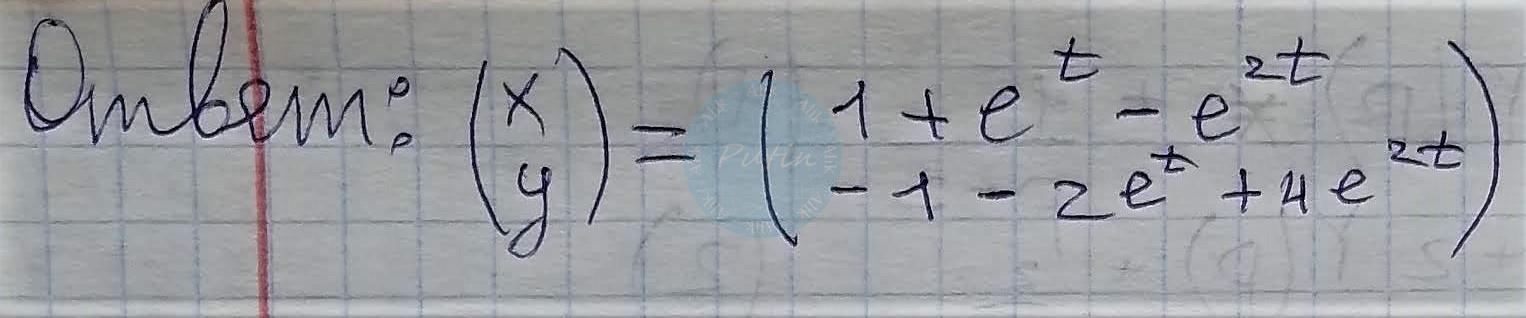 Ответ: (x y) = (1 + e^t - e^{2t}
-1 - 2e^t + 4e^{2t})
Putin